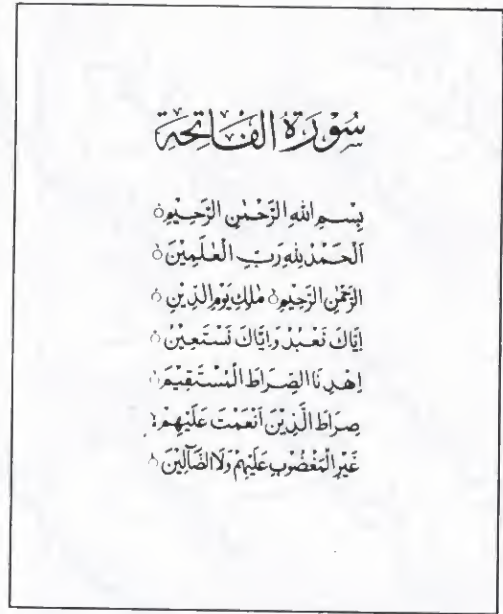 سُوْرَةُ الْفَاتِحَةِ
بِسْمِ اللهِ الرَّحْمٰنِ الرَّحِيْمِ ○
اَلْحَمْدُ لِلّٰهِ رَبِّ الْعٰلَمِيْنَ ○
الرَّحْمٰنِ الرَّحِيْمِ ○ مٰلِكِ يَوْمِ الدِّيْنِ ○
اِيَّاكَ نَعْبُدُ وَاِيَّاكَ نَسْتَعِيْنُ ○
اِهْدِنَا الصِّرَاطَ الْمُسْتَقِيْمَ ○
صِرَاطَ الَّذِيْنَ اَنْعَمْتَ عَلَيْهِمْ ○
غَيْرِ الْمَغْضُوْبِ عَلَيْهِمْ وَلَا الضَّآلِّيْنَ ○